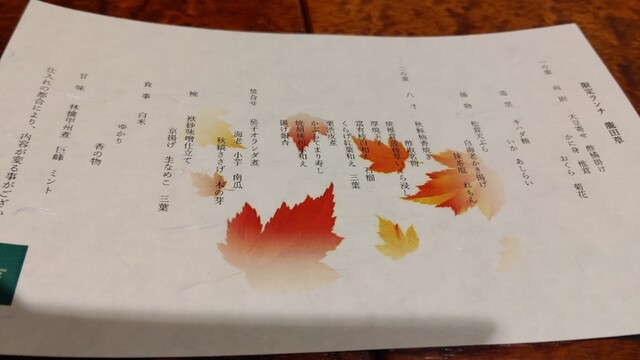 限定ランチ 龍田草
一の重 向附 酢橘掛け
大豆寄せ 椎茸 菊花
かに身 おくら
造里 キハダ鮪
いか あしらい
揚物 松茸天ぷら
白海老かき揚げ
抹茶塩 れもん
二の重 八寸 秋鮭柚香焼き
厚焼玉子
栗渋皮煮
くらげ紅葉和え 三葉
かますてまり寿し
揚げ銀杏
焚合せ 茄子オランダ煮
海老 小芋 南瓜
秋橘ささげ 木の芽
椀 袱紗味噌仕立て
京揚げ 生なめこ 三葉
食事 白米
ゆかり
香の物
甘味 林檎甲州煮 巨峰 ミント
仕入れの都合により、内容が変る事がござい